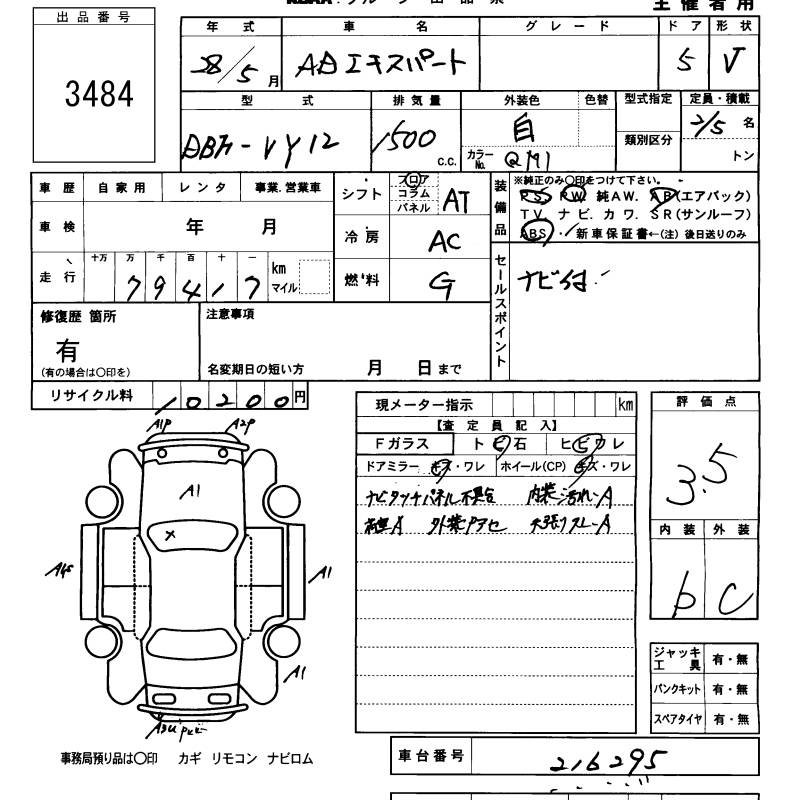 主催者用
出品番号
3484
年式 車名 グレード ドア 形状
28/5月 ADエキスパート 5 V
型式 排気量 外装色 色替 型式指定 定員・積載
DBF-VY12 1500 c.c. 白 カラーNo. QM1 類別区分 2/5名 トン
車歴 自家用 レンタ 事業.営業車
車検 年 月
走行 十万 万 千 百 十 一
79417 km マイル
シフト フロア コラム パネル AT
冷房 AC
燃料 G
装備品
※純正のみ〇印をつけて下さい。
PS. PW. 純AW. AB(エアバック)
TV. ナビ. カワ. SR(サンルーフ)
ABS. 新車保証書←(注) 後日送りのみ
セールスポイント
ナビ付
修復歴 箇所
有
(有の場合は〇印を)
注意事項
名変期日の短い方 月 日まで
リサイクル料 10200円
現メーター指示 km
【査定員記入】
Fガラス トビ石 ヒビワレ
ドアミラー キズ・ワレ ホイール(CP) キズ・ワレ
ナビタッチパネル不具合 内装汚れ-A
外装Pアセ 天張りスレ-A
評価点
3.5
内装 外装
b C
A1P A2P
A1
×
A1
A1
事務局預り品は〇印 カギ リモコン ナビロム
ジャッキ工具 有・無
パンクキット 有・無
スペアタイヤ 有・無
車台番号 216295